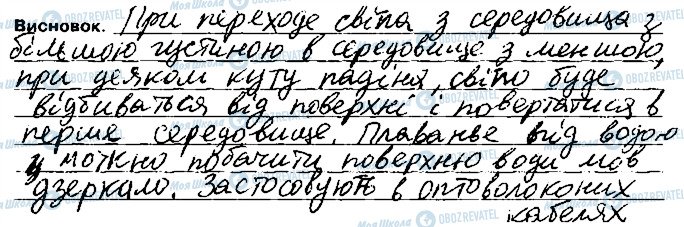 Висновок. При переходе світа з середовища з
більшою густиною в середовище з меншою,
при деяком куту падіня, світо буде
відбиваться від поверхні і повертатися в
перше середовище. Плаванве під водою
можно побачити поверхню води мов
дзеркало. Застосовують в оптоволоконих
кабелях